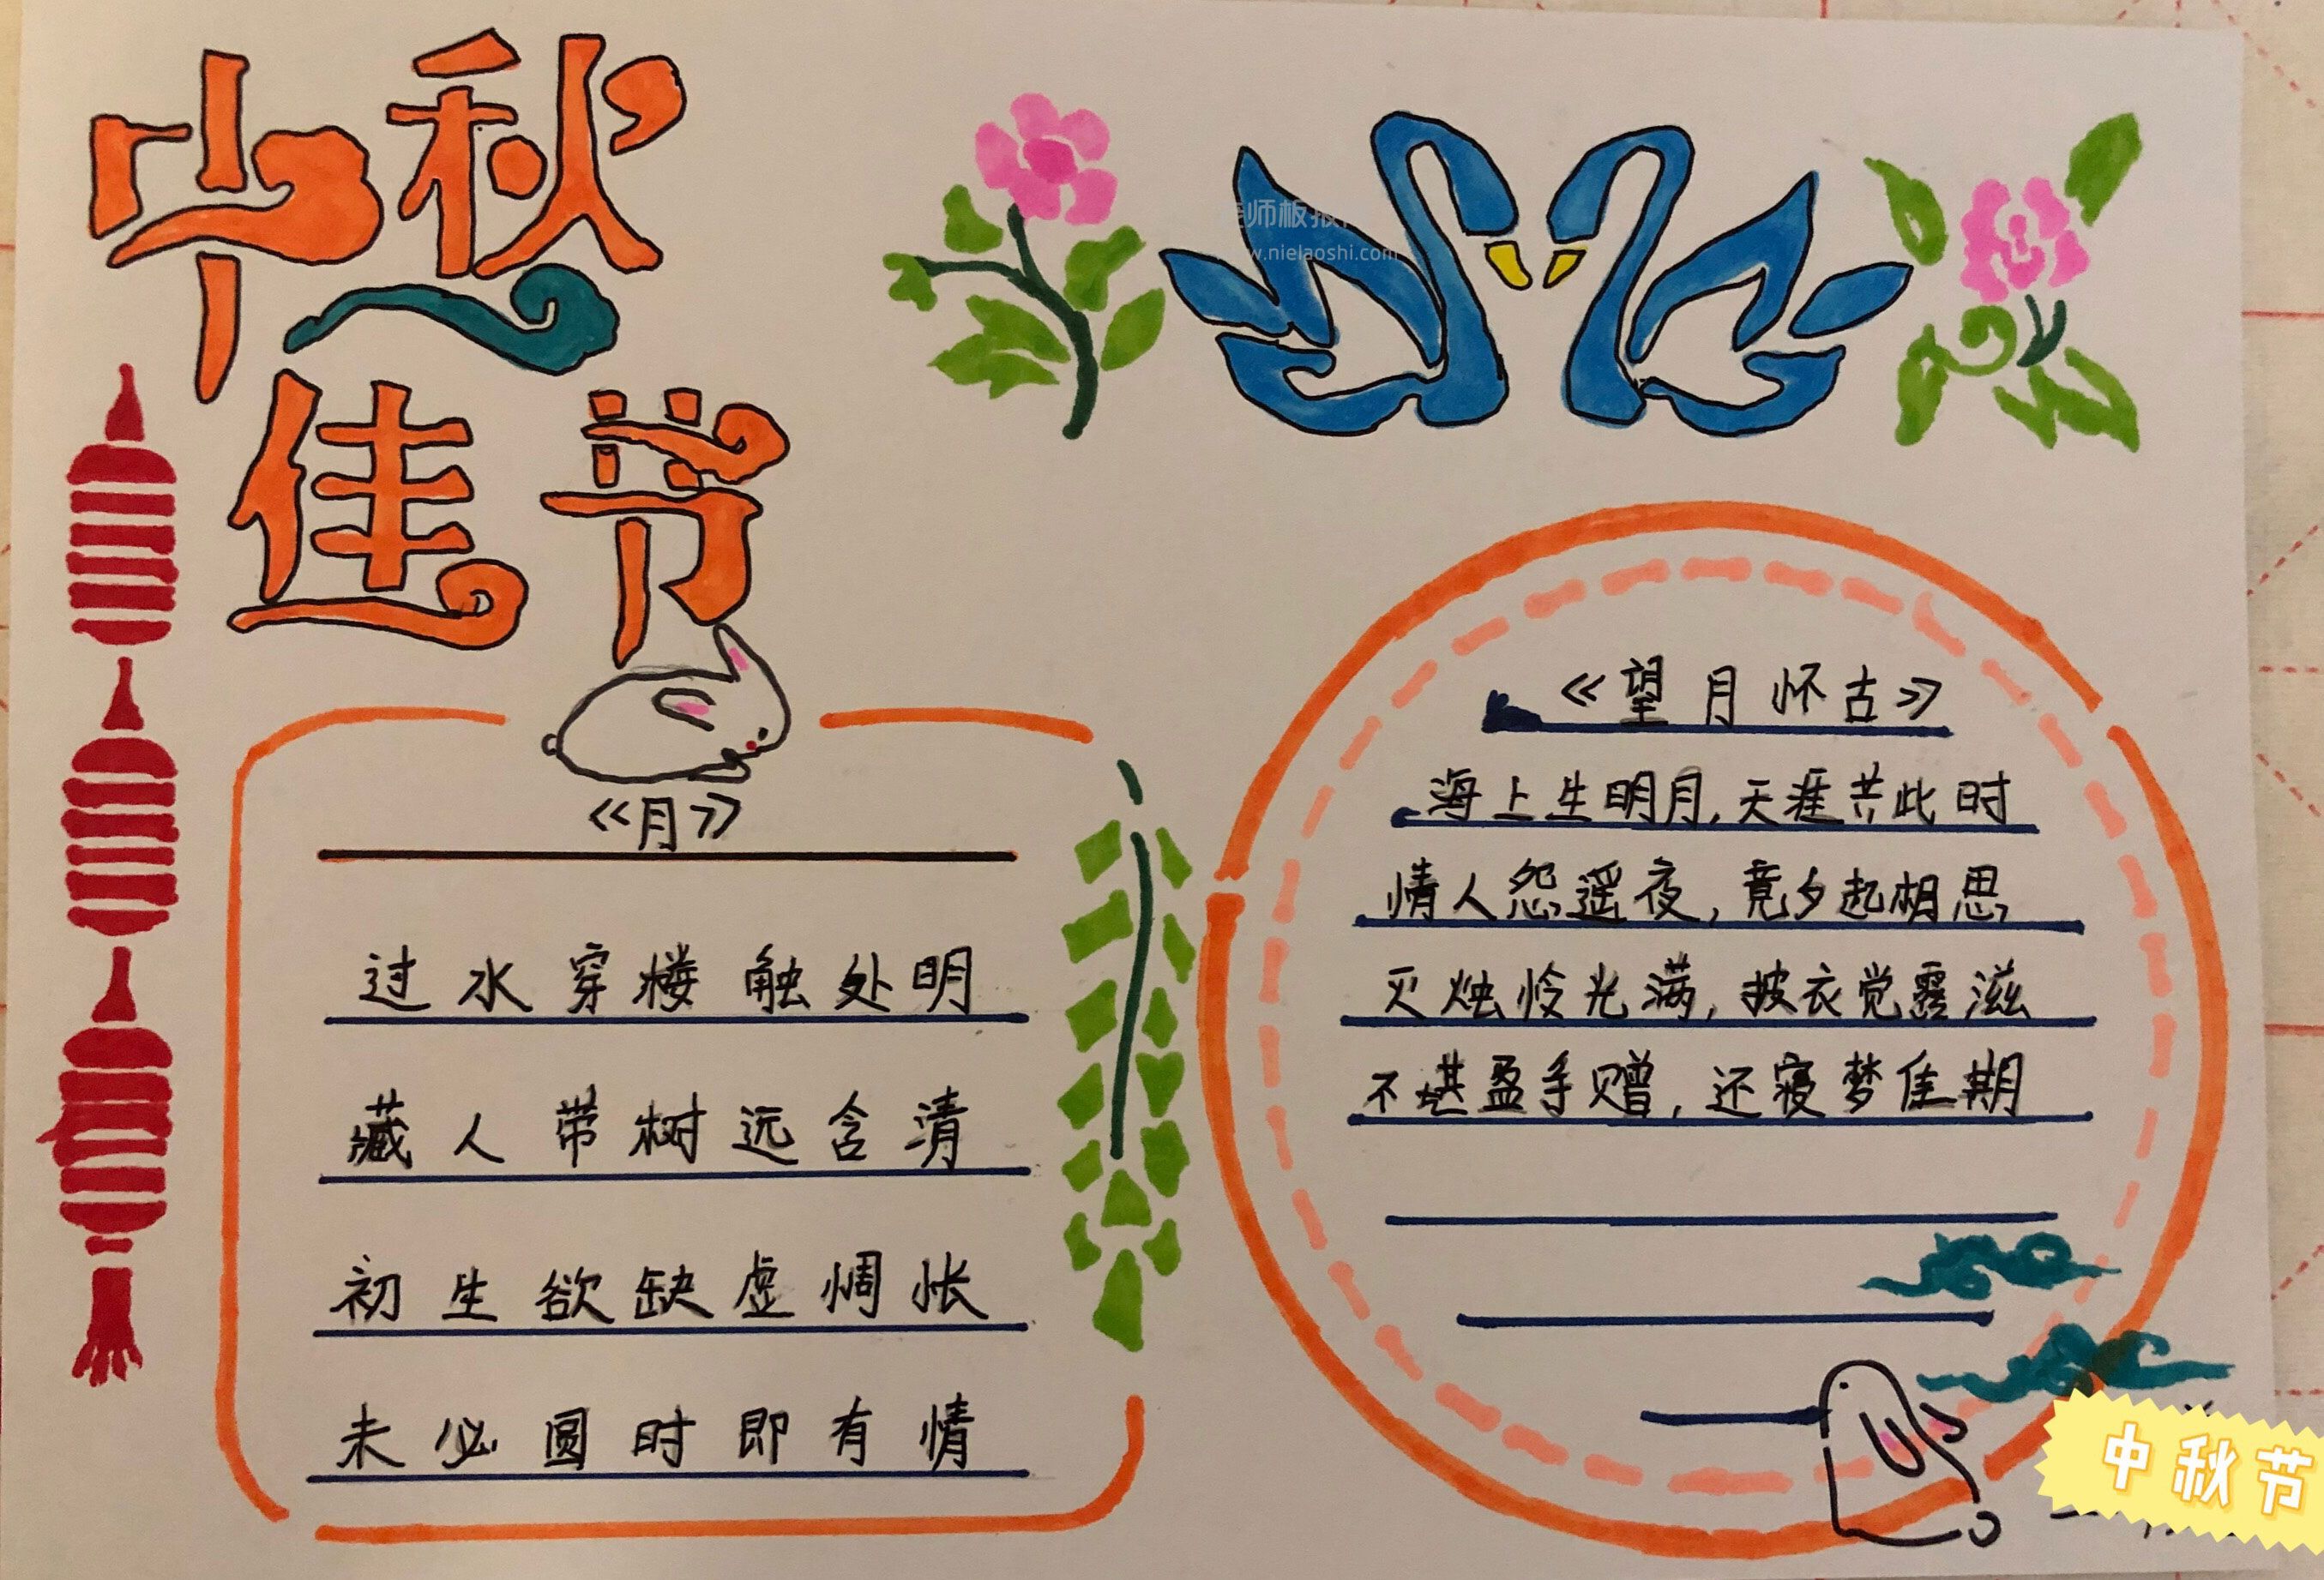 中秋
佳节
师板报
www.nielaoshi.com
《月》
过水穿楼触处明
藏人带树远含清
初生欲缺虚惆怅
未必圆时即有情
《望月怀古》
海上生明月,天涯共此时
情人怨遥夜,竟夕起相思
灭烛怜光满,披衣觉露滋
不堪盈手赠,还寝梦佳期
中秋节